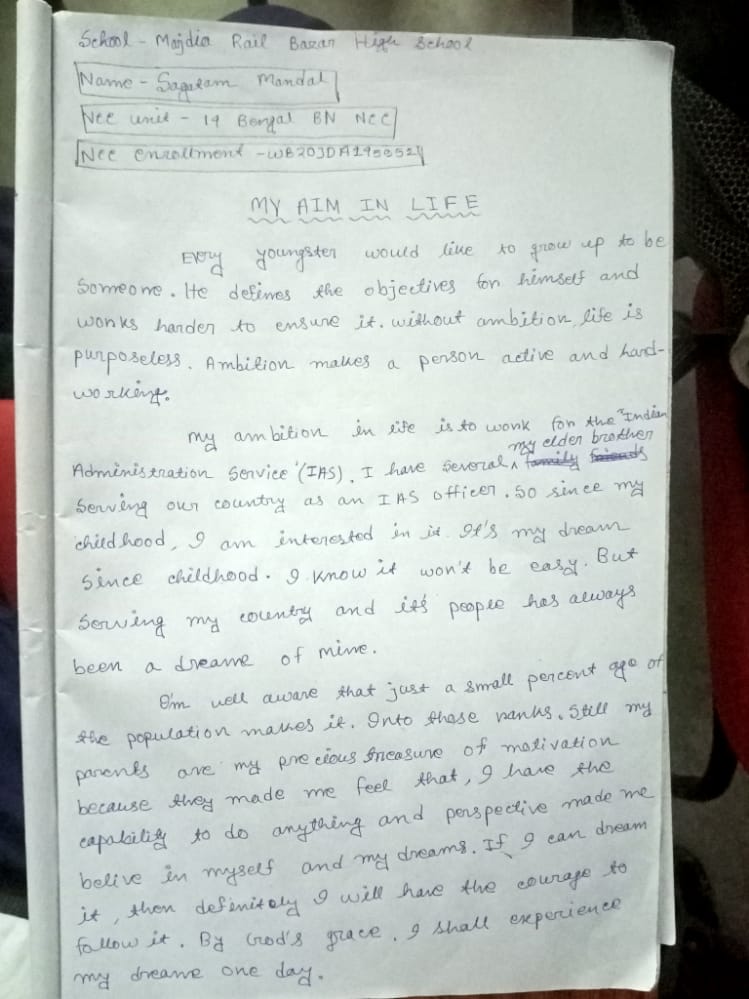 School - Majdia Rail Bazar High School
Name - Sagaram Mandal
NCC unit - 19 Bengal BN NCC
NCC enrollment -
MY AIM IN LIFE
Every youngster would like to grow up to be
someone. He defines the objectives for himself and
works harder to ensure it. without ambition, life is
purposeless. Ambition makes a person active and hard-
working.
My ambition in life is to work for the "Indian
Administration Service" (IAS). I have several my elder brother family friends
serving our country as an IAS officer. So since my
childhood, I am interested in it. It's my dream
since childhood. I know it won't be easy. But
serving my country and it's people has always
been a dreame of mine.
I'm well aware that just a small percent age of
the population makes it. Into these ranks. Still my
parents are my precious treasure of motivation
because they made me feel that, I have the
capability to do anything and perspective made me
belive in myself and my dreams. If, I can dream
it, then definitely I will have the courage to
follow it. By God's grace, I shall experience
my dreame one day.